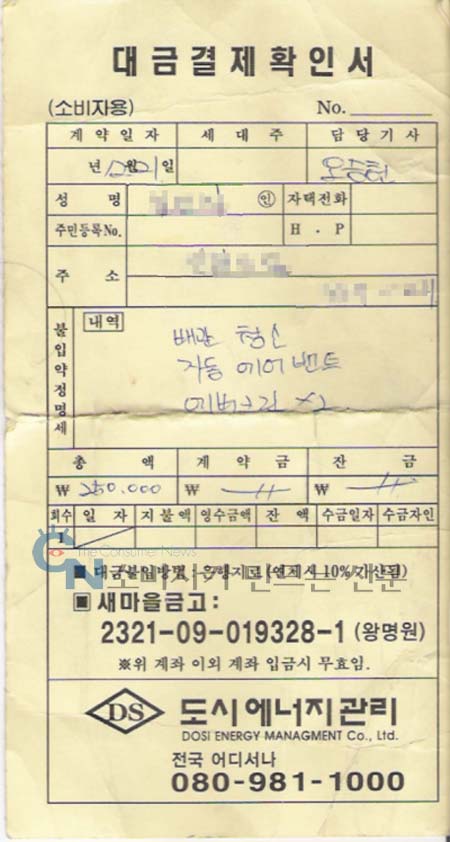 대금결제확인서
(소비자용) No.
계약일자 세대주 담당기사
년 12월 21일 오승현
성 명 인 자택전화
주민등록No. H . P
주 소
불입약정명세
내역
배관 청소
자동 에어 벤트
에버그린 x2
총 액 계 약 금 잔 금
₩ 250.000 ₩ ₩
회수 일 자 지불액 영수금액 잔 액 수금일자 수금자인
1
The Consumer News
CN 소비자가 만드는 신문
■ 대금불입방법 : 은행지로 (연체시 10% 가산됨)
▣ 새마을금고 :
2321-09-019328-1 (왕명원)
※위 계좌 이외 계좌 입금시 무효임.
DS 도시에너지관리
DOSI ENERGY MANAGMENT Co., Ltd.
전국 어디서나
080-981-1000